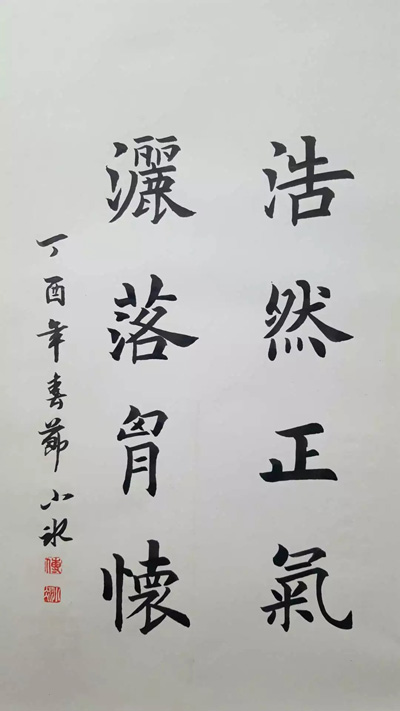 浩然正氣
灑落胷懷
丁酉年春節 小冰